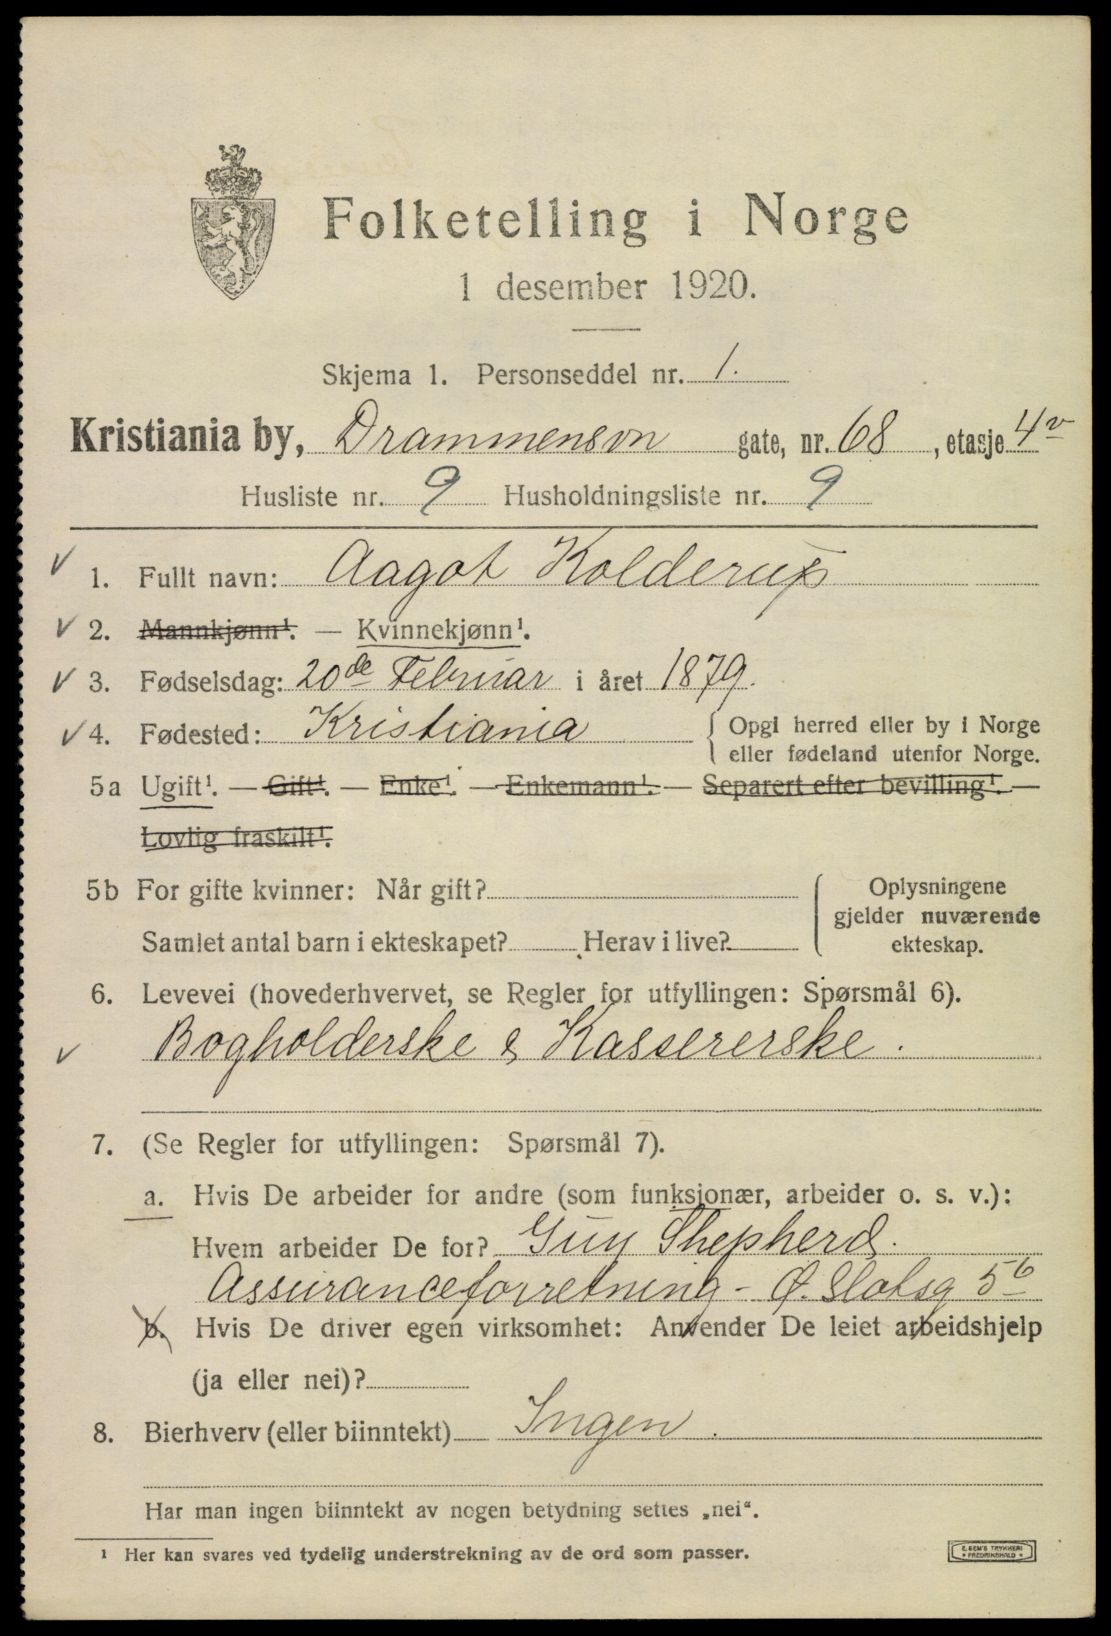 Folketelling i Norge
1 desember 1920.
Skjema 1. Personseddel nr. 1.
Kristiania by, Drammensvn gate, nr. 68, etasje 4 v
Husliste nr. 9 Husholdningsliste nr. 9
1. Fullt navn: Aagot Kolderup
2. Mannkjønn¹. — Kvinnekjønn¹.
3. Fødselsdag: 20de Februar i året 1879.
4. Fødested: Kristiania { Opgi herred eller by i Norge
eller fødeland utenfor Norge.
5a Ugift¹. — Gift¹. — Enke¹. — Enkemann¹. — Separert efter bevilling¹. —
Lovlig fraskilt¹.
5b For gifte kvinner: Når gift? Oplysningene
gjelder nuværende
Samlet antal barn i ekteskapet? Herav i live? ekteskap.
6. Levevei (hovederhvervet, se Regler for utfyllingen: Spørsmål 6).
Bogholderske & Kassererske.
7. (Se Regler for utfyllingen: Spørsmål 7).
a. Hvis De arbeider for andre (som funksjonær, arbeider o. s. v.):
Hvem arbeider De for? Guy Shepherd.
Assuranceforretning - Ø. Slotsg 5 b
b. Hvis De driver egen virksomhet: Anvender De leiet arbeidshjelp
(ja eller nei)?
8. Bierhverv (eller biinntekt) Ingen.
Har man ingen biinntekt av nogen betydning settes „nei“.
¹ Her kan svares ved tydelig understrekning av de ord som passer.
E. SEM'S TRYKKERI
FREDRIKSHALD